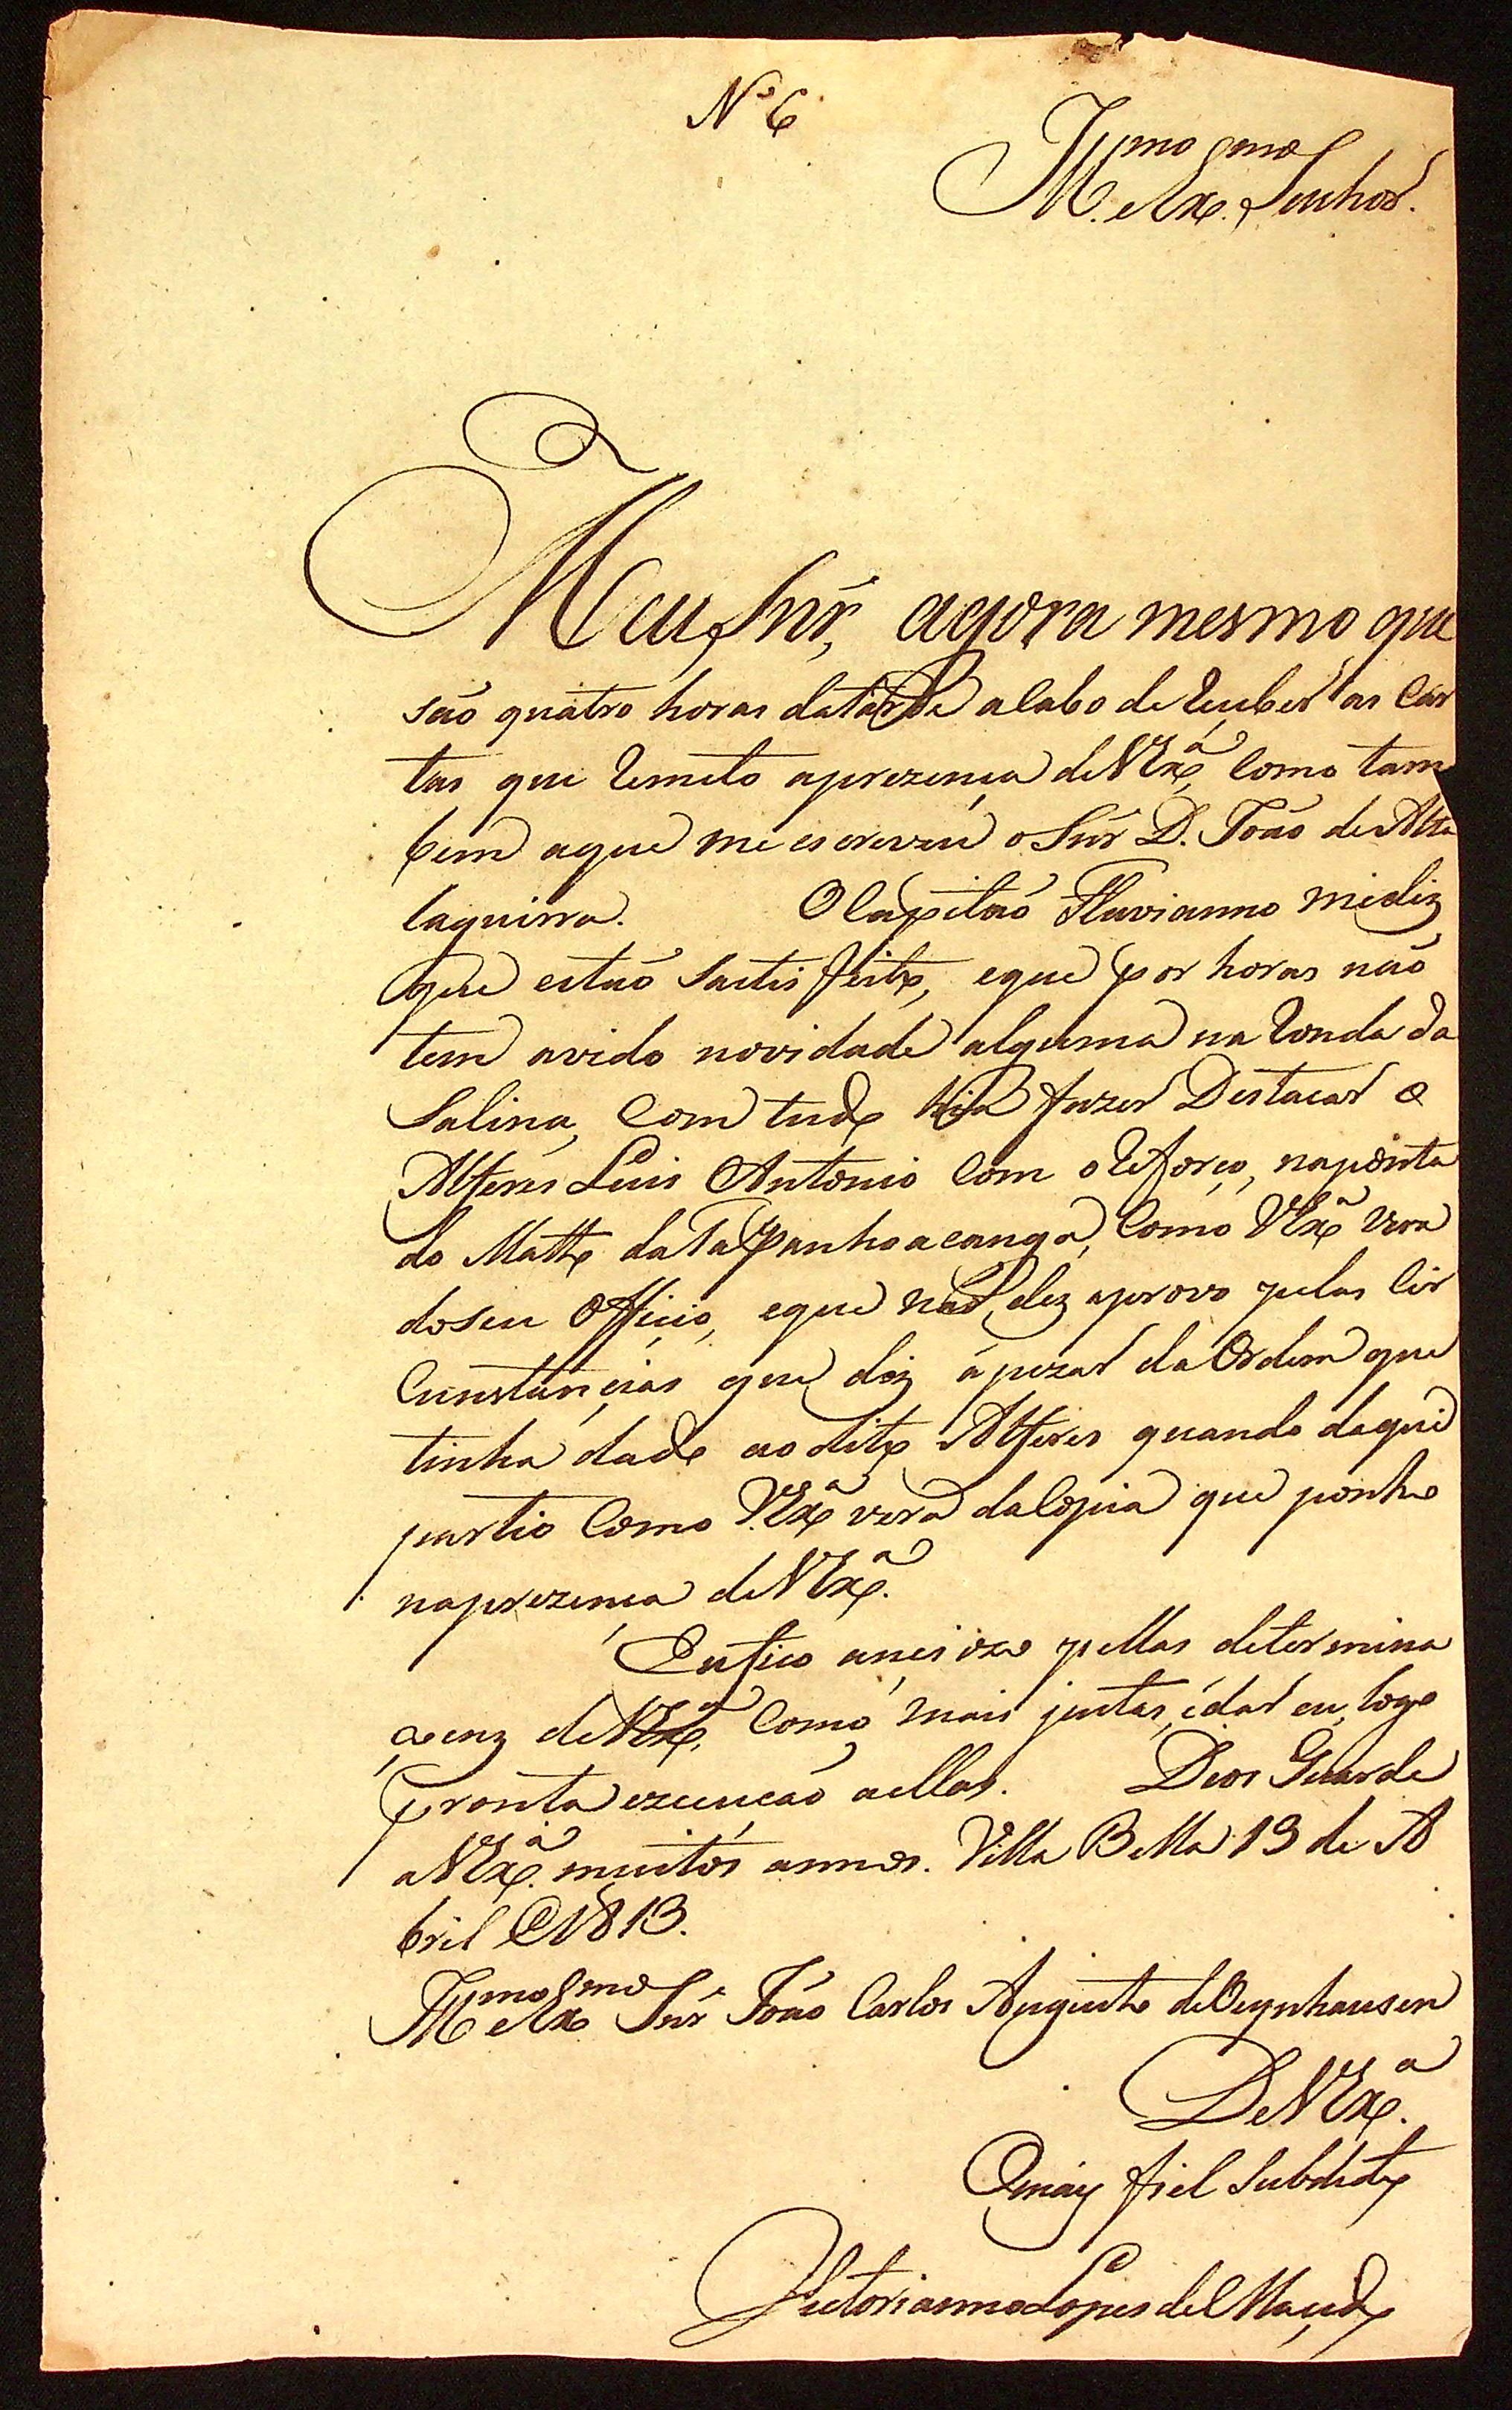 N.º 6
Ill.mo e Ex.mo Senhor.
Meu Snr., agora mesmo que
são quatro horas datarde acabo de receber as Car
tas que remeto aprezença deVEx.ª, como tam
bem aque me escreveu o Snr D. João de Alta
laguirra. O Capitaó Flavianno mediz
que estaó Sastisfeito, eque por horas naó
tem avido novidade alguma na ronda da
Salina, Com tudo hia fazer Destacar o
Alferes Luis Antonio Com o reforço, naponta
do Matto daTapanhoacanga, Como VEx.ª vera
doseu Officio, eque naó dez aprovo pelas Cir
Cunstancias que diz ápezar da Ordem que
tinha dado ao dito Alferes quando daqui
partio Como VEx.ª vera daCopia que ponho
naprezença deVEx.ª
Eu fico anciozo pellas determina
çoenz deVEx.ª, Como mais justas, édar eu, logo
pronta execucaó aellas. Deos Guarde
aVEx.ª muitos annos. Villa Bella 13 de A
bril @ 1813.
Ill.mo e Ex.mo Snr João Carlos Augusto deOeynhausen
DeVEx.ª
Omáis fiel Subdito
Victorianno Lopes deMacedo